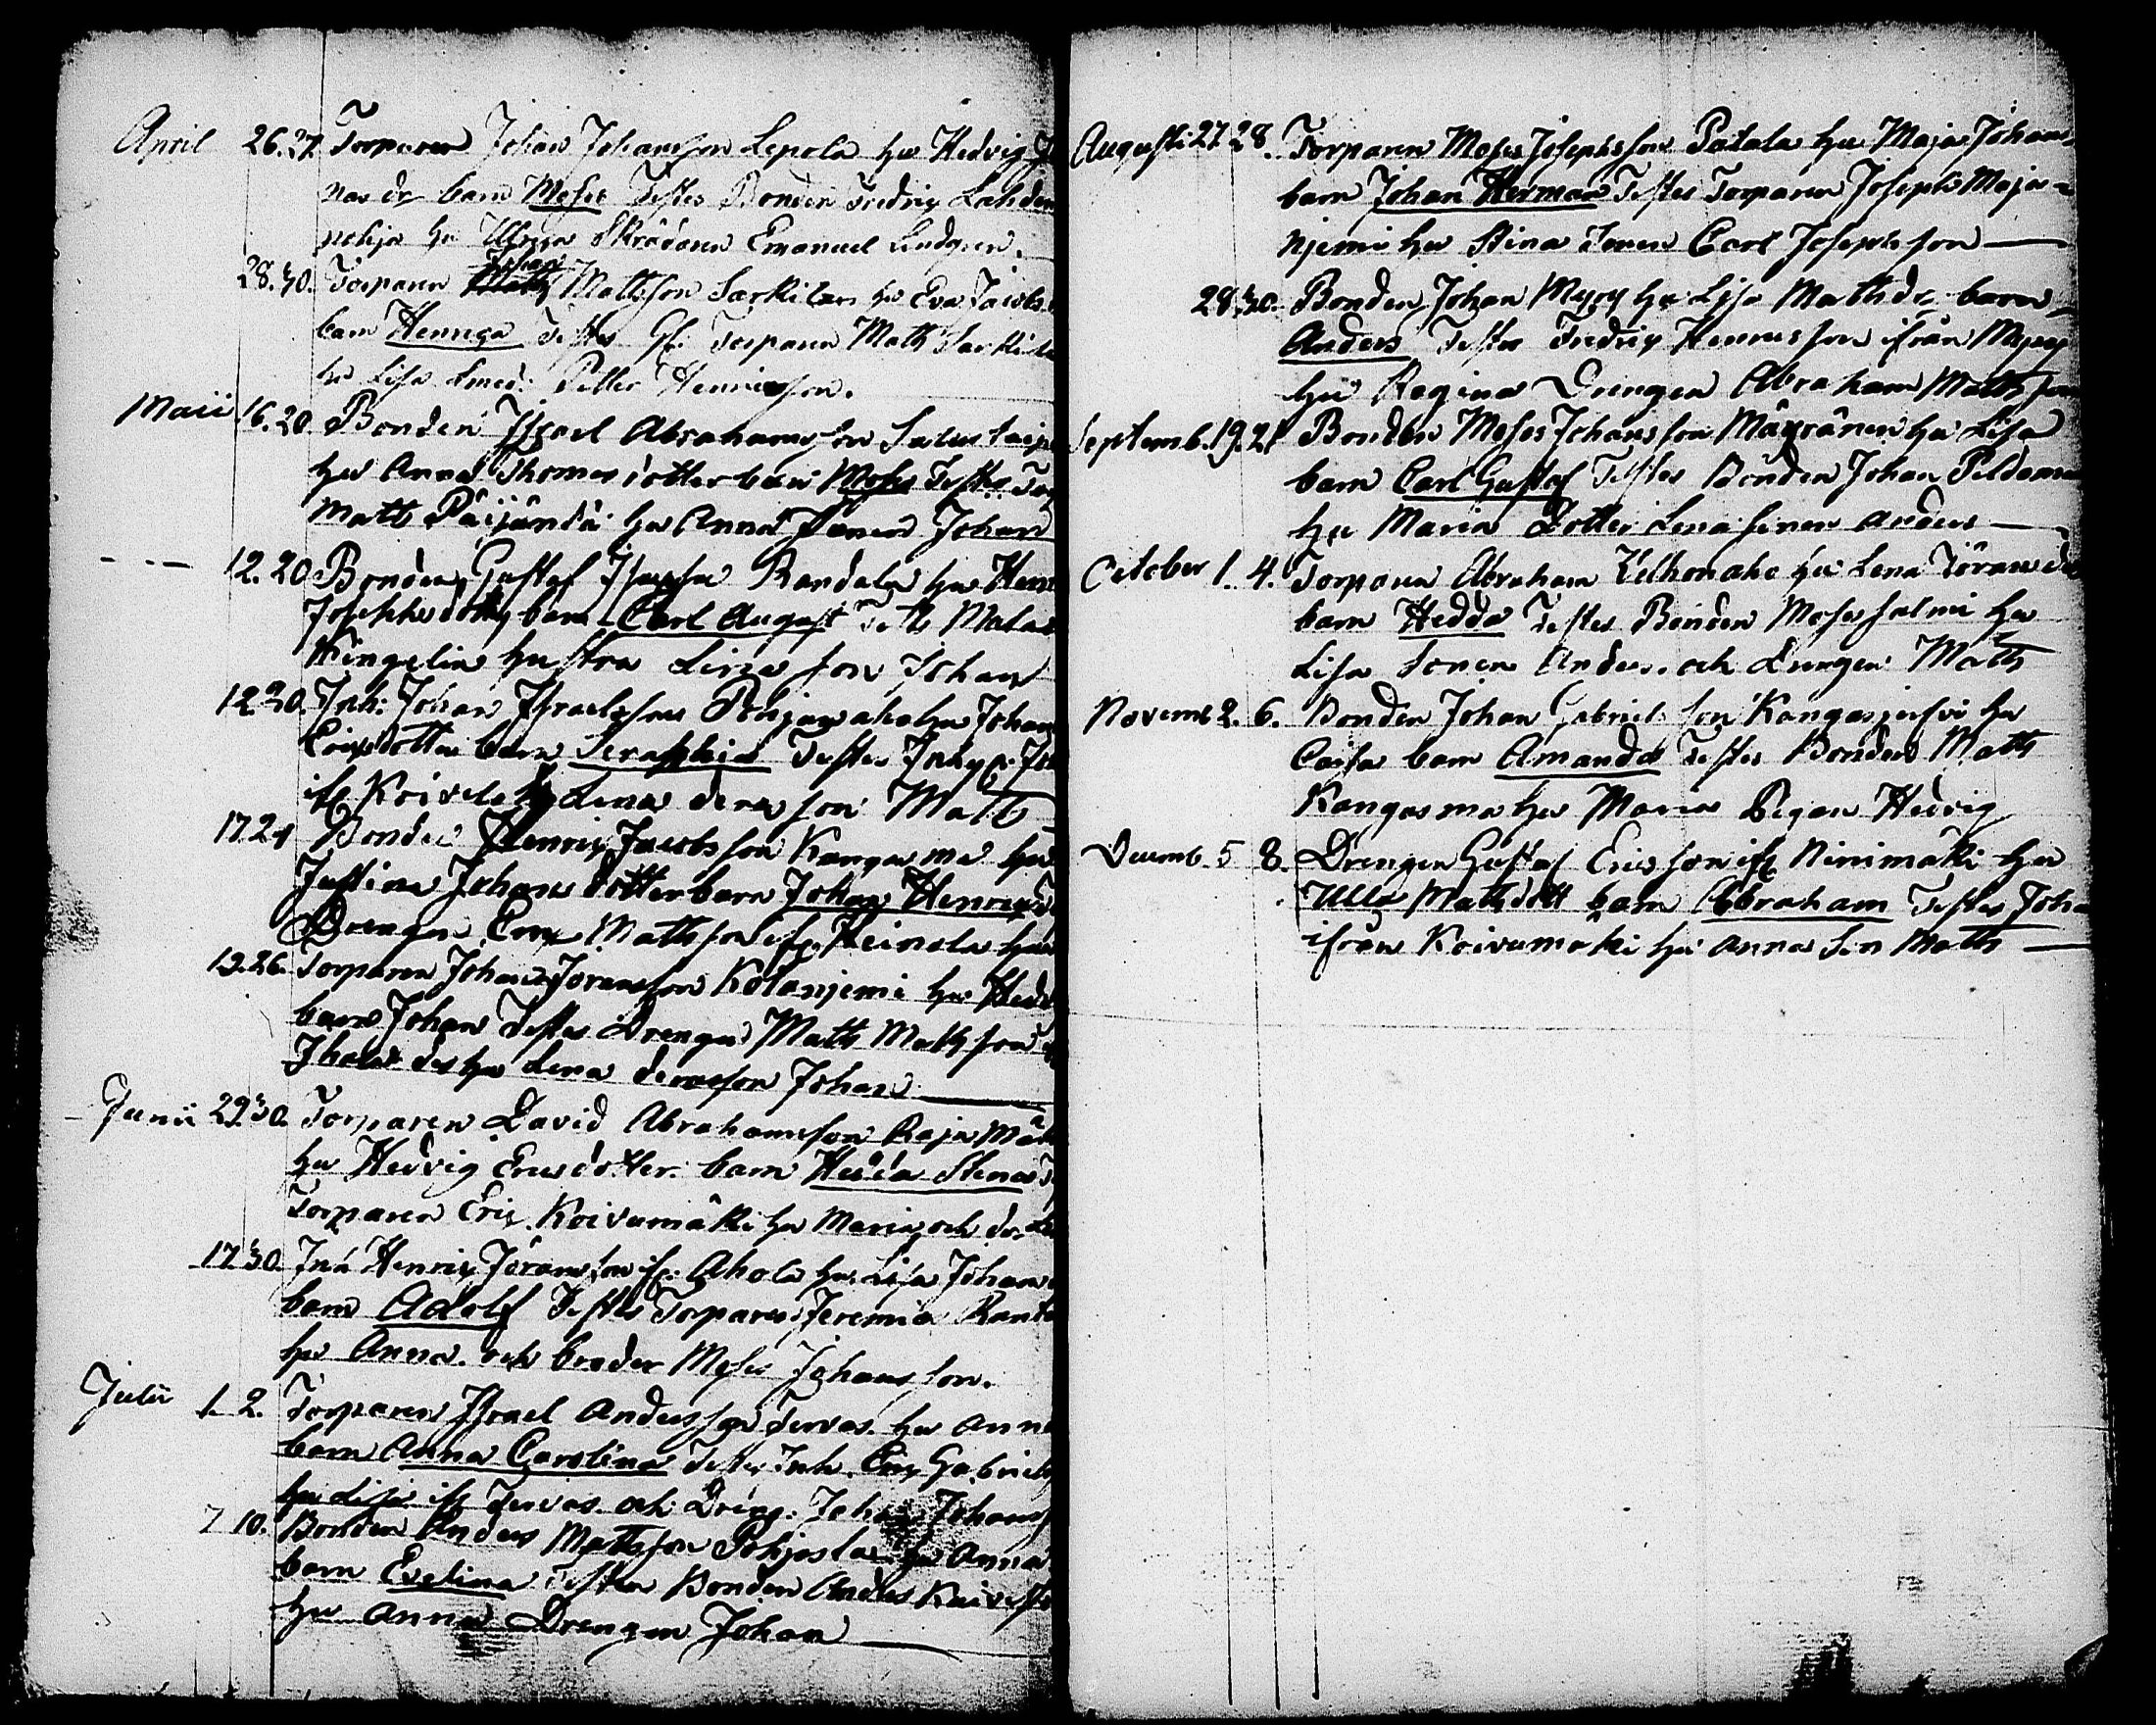 April 26. 27. Torparen Johan Johansson Lepola hu Hedvig
nas dr barn Moses Testes Bonden Fredrig Lahden
pohja hu Ulrica Skrädaren Emanuel Lindgren.
28. 30. Torparen Johan Mattsson Sarkilax hu Eva Jacobs
barn Henrica Testes Gf: Torparen Math Sarkila
hu Lisa Smed: Petter Henricsson.
Maii 16. 20. Bonden Israel Abrahamsson
hu Anna Thomasdotter barn Moses Testes
Matts Päijändä hu Anna Sonen Johan
12. 20. Bonden Gustaf Randala hu
Josephsdotter barn Carl August Test
Kingelin hustru Lisa son Johan
12 20. Inh: Johan Israelsson hu Johan
Ericsdotter barn Seraphia Testes Inhys:
if Koivula hu Lena deras son Matts
17. 21 Bonden Henrix Jacobsson Kangasma hu
Justina Johansdotter barn Johan Henrix
Drengen Erix Mathsson if. Heinola hu
19. 26. Torparen Johan Joransson Kotanjemi hu
barn Johan Testes Drengen Matts Mathsson
des hu Lena deras son Johan
Junii 29. 30. Torparen David Abrahamsson Raja
hu Hedvig Ericsdotter barn Hedda Stena
Torparen Erix Koivumäki hu Maria och dr.
17. 30. Inh Henrix Joransson if. Ahola hu Lisa Johan
barn Adolf Testes Torparen Jeremia
hu Anna. och broder Moses Johansson.
Julii 1. 2. Torparen Israel Andersson Tervas. hu Anna
barn Anna Carolina Testes Inh. Erix Gabriels
hu Lisa if Tervas. och Dreng: Johan Johans
7 10. Bonden Anders Mattsson Pohjosla hu Anna
barn Evelina Testes Bonden Anders
hu Anna Drengen Johan
Augusti 27 28. Torparen Moses Josephsson Patala hu Maja Johans
barn Johan Herman Testes Torparen Joseph Maja-
njemi hu Stina Sonen Carl Josephsson
28. 30. Bonden Johan Myry hu Lisa Mathsdr barn
Anders Testes Fredrig Henricsson ifrån Myry
hu Regina Drengen Abraham Mattsson
Septemb. 19. 21 Bonden Moses Johansson Mäyränen hu Lisa
barn Carl Gustaf Testes Bonden Johan
hu Maria Dotter Lena sonen Anders
October 1. 4. Torparen Abraham hu Lena Jöransdr
barn Hedda Testes Bonden Moses Salmi hu
Lisa Sonen Anders. och Drengen Math
Novemb 2. 6. Bonden Johan Gabrielsson Kangasjerfvi hu
Caisa barn Amanda Testes Bonden Math
Kangasma hu Maria Pigan Hedvig
Decemb. 5 8. Drengen Gustaf Ericsson if Ninimäki hu
Ulla Mathsdott barn Abraham Testes Joha
ifrån Koivumäki hu Anna Son Math